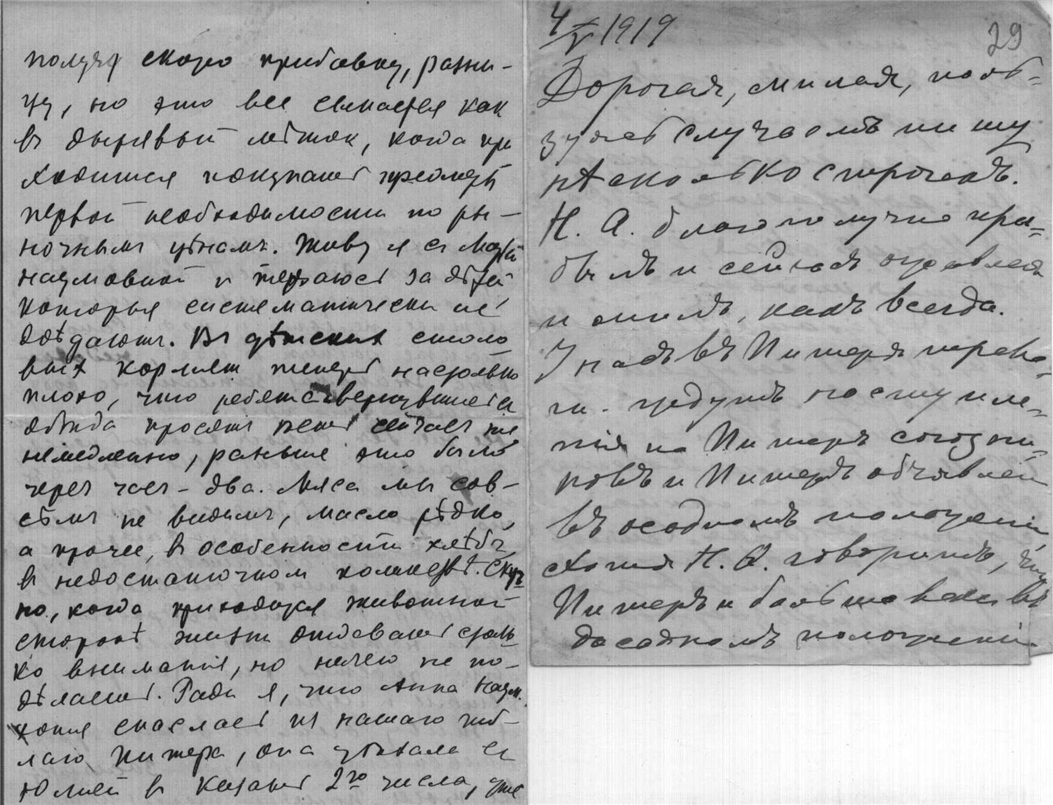 получу скоро прибавку, разни-
цу, но это все сыпается как
в дырявый мешок, когда при
ходится покупать предметы
первой необходимости по ры-
ночным ценам. Живу я с Марьей
Наумовной и терзаюсь за детей
которые систематически не
доѣдают. В дѣтских столо
вых кормят теперь настолько
плохо, что ребята вернувшись с
обѣда просят есть сейчас же
немедленно, раньше это было
через час-два. Мяса мы сов-
сѣм не видим, масло рѣдко,
а прочее, в особенности хлѣб,
в недостаточном количеств. Скуч
но, когда приходится животной
сторонѣ жизни отдавать столь
ко вниманія, но нечего не по-
дѣлаешь. Рада я, что Анна Наум.
хотя спаслась из нашего гиб-
лаго Питера, она уѣхала с
Юлией в Казань 2го числа, уже
4/V 1919
29
Дорогая, милая, поль-
зуясь случаемъ пишу
нѣсколько строчекъ.
Н. А. благополучно при-
былъ и сейчасъ
и милъ, какъ всегда.
У насъ въ Питерѣ трево-
ги. ждутъ наступле-
нія на Питеръ союзни-
ковъ и Питеръ объявлен
въ осадномъ положеніи
хотя Н. А. говоритъ, что
Питеръ и большевики въ
досадномъ положеніи